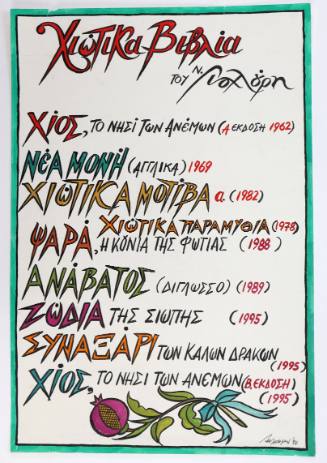 Χιώτικα Βιβλία
του Ν. Γιαλούρη
ΧΙΟΣ, ΤΟ ΝΗΣΙ ΤΩΝ ΑΝΕΜΩΝ (Α ΕΚΔΟΣΗ 1962)
ΝΕΑ ΜΟΝΗ (ΑΓΓΛΙΚΑ) 1969
ΧΙΩΤΙΚΑ ΜΟΤΙΒΑ α (1982)
ΧΙΩΤΙΚΑ ΠΑΡΑΜΥΘΙΑ (1978)
ΨΑΡΑ, Η ΚΟΝΙΑ ΤΗΣ ΦΩΤΙΑΣ (1988)
ΑΝΑΒΑΤΟΣ (ΔΙΓΛΩΣΣΟ) (1989)
ΖΩΔΙΑ ΤΗΣ ΣΙΩΠΗΣ (1995)
ΣΥΝΑΞΑΡΙ ΤΩΝ ΚΑΛΩΝ ΔΡΑΚΩΝ
(1995)
ΧΙΟΣ, ΤΟ ΝΗΣΙ ΤΩΝ ΑΝΕΜΩΝ (Β. ΕΚΔΟΣΗ)
(1995)